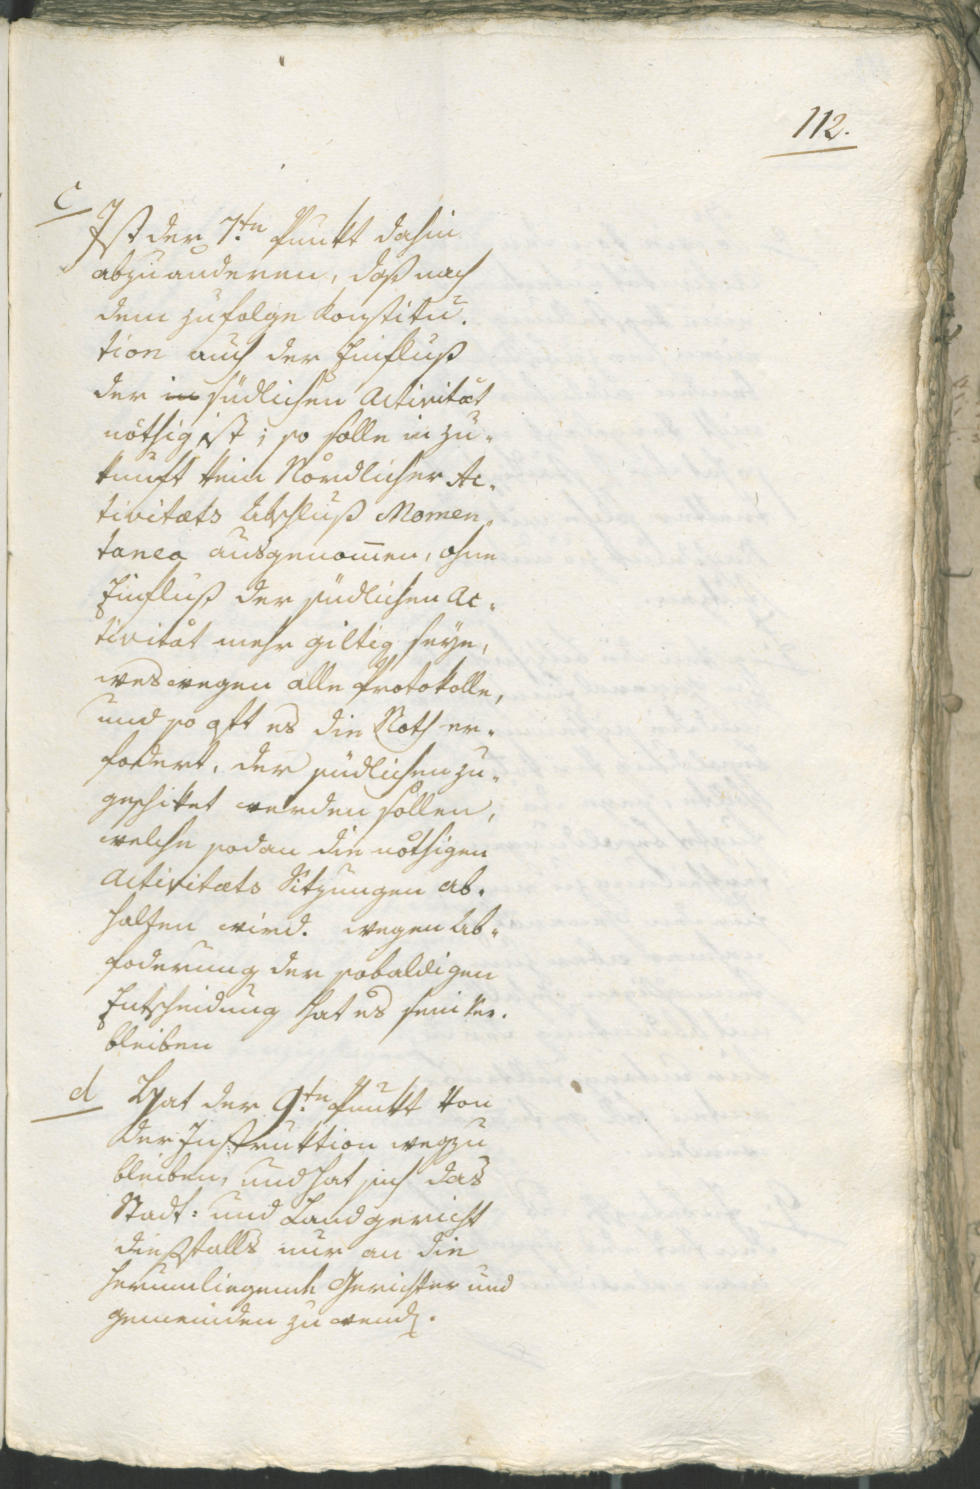 112.
c
Ist der 7.tn Punkt dahin
abzuänderen, daß nach
dem zufolge Konstitu-
tion auch der Einfluß
der in südlichen Activität
nöthig ist; so solle in zu-
kunft kein Nördlicher Ac-
tivitæts Abschluß Momen-
tanea ausgenommen, ohne
Einfluß der südlichen Ac-
tivität mehr giltig seyn,
weswegen alle Protokolle,
und so oft es die Noth er-
fodert, der südlichen zu-
geschikket werden sollen,
welche sodan die nöthigen
Activitæts Sitzungen ab-
halten wird. wegen Ab-
foderung der sobaldigen
Entscheidung hat es sein Ver-
bleiben
d
Hat der 9.tn Punkt von
der Instruktion wegzu
bleiben, und hat sich das
Stadt- und Landgericht
dießfalls nur an die
herumliegende Gerichter und
gemeinden zu wend.